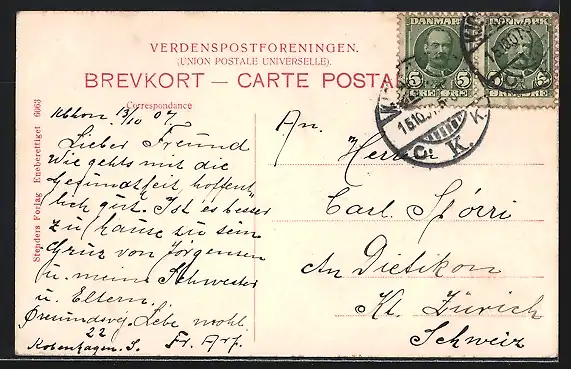 VERDENSPOSTFORENINGEN.
(UNION POSTALE UNIVERSELLE).
BREVKORT — CARTE POSTALE
Correspondance
Stenders Forlag Eneberettiget 6063
DANMARK
5 5
ØRE ØRE
DANMARK
ØRE ØRE
C. K.
K.
Kbhvn. 13/10 07
Lieber Freund
Wie gehts mit die
Gesundtfeit hoffent
lich gut. Ist es besser
zu hause zu sein
Gruz von Jörgensen
u. meine Schwester
u. Eltern.
Øresundsvej. Lebe wohl.
22
Kobenhagen. S. Fr. Arp.
An.
Herrn
Carl Spörri
An Dietikon
Kt. Zürich
Schweiz